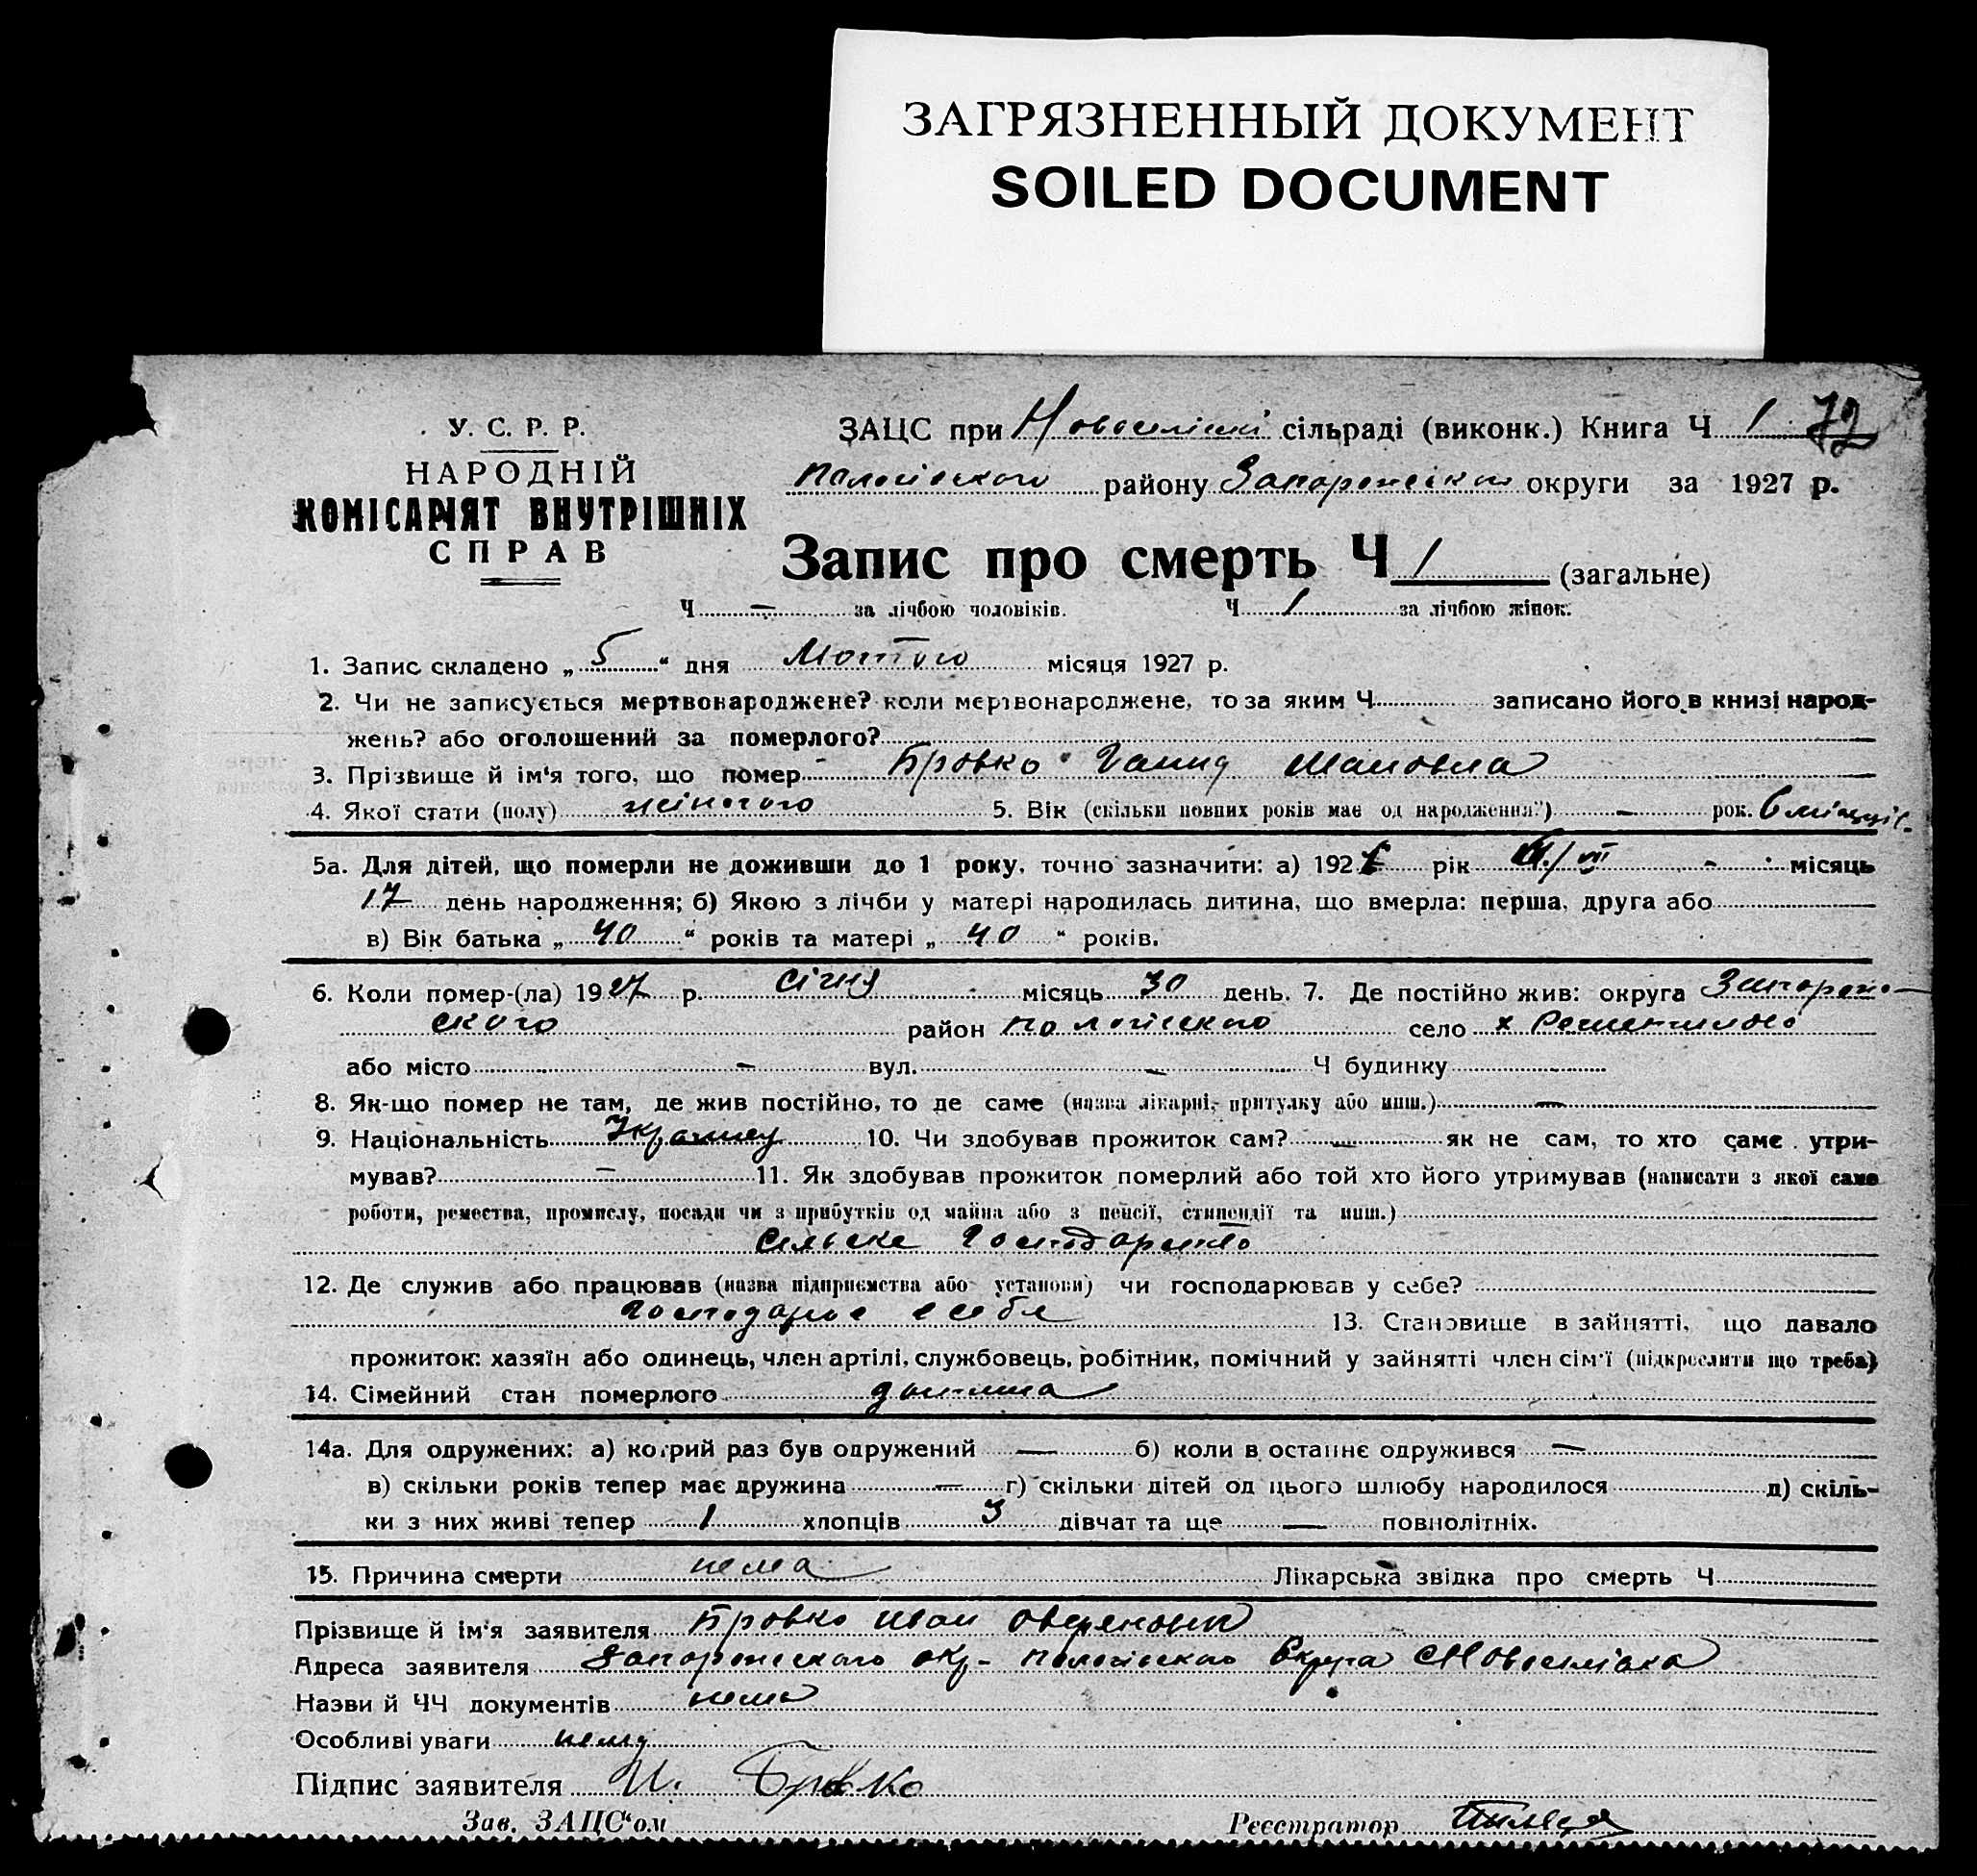 ЗАГРЯЗНЕННЫЙ ДОКУМЕНТ
SOILED DOCUMENT
У. С. Р. Р.
НАРОДНІЙ
КОМІСАРІЯТ ВНУТРІШНІХ
СПРАВ
ЗАЦС при сільраді (виконк.) Книга Ч 1 72
Пологівського району округи за 1927 р.
Запис про смерть Ч 1 (загальне)
Ч — за лічбою чоловіків. Ч 1 за лічбою жінок.
1. Запис складено „ 5 “ дня Лютого місяця 1927 р.
2. Чи не записується мертвонароджене? коли мертвонароджене, то за яким Ч записано його в книзі народ-
жень? або оголошений за померлого?
3. Прізвище й ім'я того, що помер Бровко Ганна
4. Якої стати (полу) жіночого 5. Вік (скільки повних років має од народження?) — рок. 6 місяців.
5а. Для дітей, що померли не доживши до 1 року, точно зазначити: а) 192 рік VII - місяць
17 день народження; б) Якою з лічби у матері народилась дитина, що вмерла: перша, друга або
в) Вік батька „ 40 “ років та матері „ 40 “ років.
6. Коли помер-(ла) 1927 р. січня місяць 30 день. 7. Де постійно жив: округа Запорож-
ского район Пологівского село х
або місто — вул. — Ч будинку
8. Як-що помер не там, де жив постійно, то де саме (назва лікарні, притулку або инш.) —
9. Національність 10. Чи здобував прожиток сам? — як не сам, то хто саме утри-
мував? — 11. Як здобував прожиток померлий або той хто його утримував (написати з якої саме
роботи, ремества, промислу, посади чи з прибутків од майна або з пенсії, стипендії та инш.)
Сельске Господарство
12. Де служив або працював (назва підприємства або установи) чи господарював у себе?
господарює в себе 13. Становище в зайнятті, що давало
прожиток: хазяїн або одинець, член артілі, службовець, робітник, помічний у зайнятті член сім'ї (підкреслити що треба)
14. Сімейний стан померлого дитина
14а. Для одружених: а) котрий раз був одружений — б) коли в останнє одружився —
в) скільки років тепер має дружина — г) скільки дітей од цього шлюбу народилося д) скіль-
ки з них живі тепер 1 хлопців 3 дівчат та ще — повнолітніх.
15. Причина смерти нема Лікарська звідка про смерть Ч
Прізвище й ім'я заявителя Бровко Иван
Адреса заявителя Запорожского окр. Пологівского
Назви й ЧЧ документів нема
Особливі уваги нема
Підпис заявителя И. Бровко
Зав. ЗАЦС'ом Реєстратор